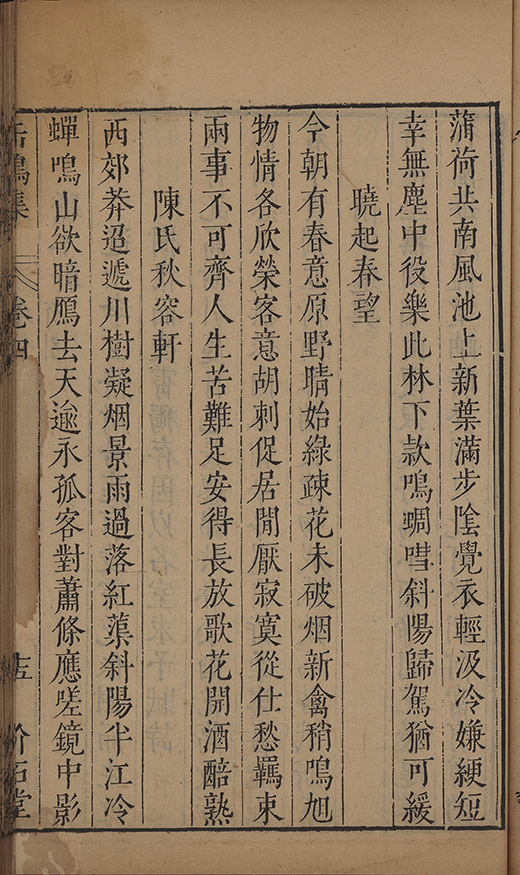 蒲荷共南風池上新葉滿步陰覺衣輕汲冷嫌綆短
幸無塵中役樂此林下款鳴蜩嘒斜陽歸駕猶可緩
曉起春望
今朝有春意原野晴始綠疎花未破烟新禽稍鳴旭
物情各欣榮客意胡刺促居閒厭寂寞從仕愁羈束
兩事不可齊人生苦難足安得長放歌花開酒醅熟
陳氏秋容軒
西郊莽迢遞川樹凝烟景雨過落紅蕖斜陽半江冷
蟬鳴山欲暗鴈去天逾永孤客對蕭條應嗟鏡中影
缶鳴集 卷四 十五